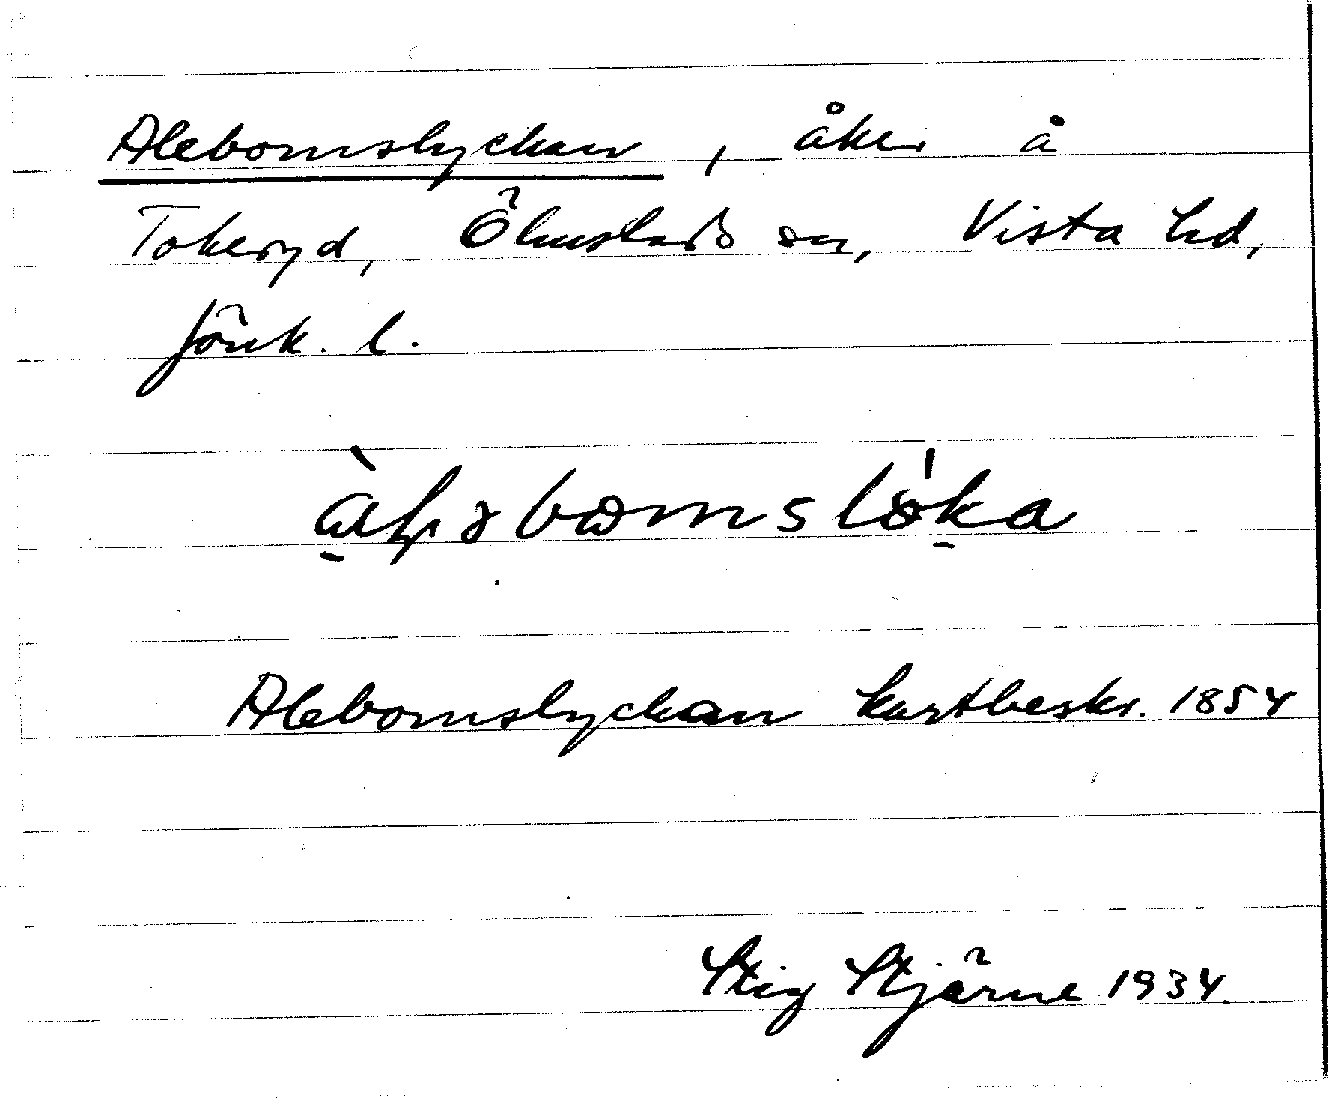 Alebomslyckan, åker å
Tokeryd, Ölmstads sn, Vista hd,
Jönk. l.
Alebomslyckan kartbeskr. 1854
Stig Stjärne 1934.